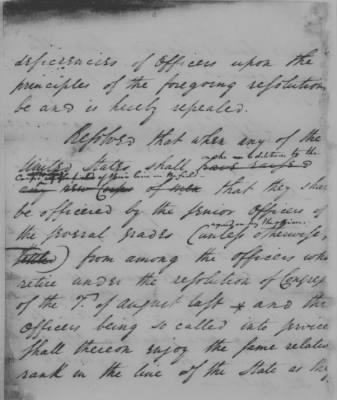 deficiencies of Officers upon the
principles of the foregoing resolution
be and is hereby repealed.
Resolved that when any of the
make addition to the
United States shall have raised
of their line in the field
any new Corps of men that they shall
be officered by the senior Officers of
the several grades (unless otherwise
settled) from among the officers who
retire under the resolution of Congress
of the 7th of august last x and the
Officers being so called into service
shall thereon enjoy the same relative
rank in the line of the State as they